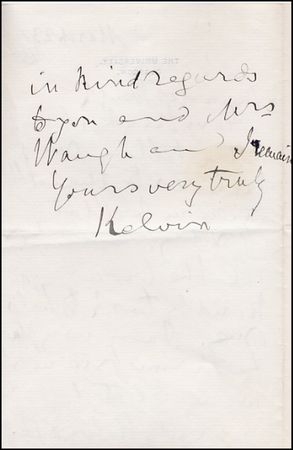 in kind regards
to you and Mrs
Waugh and I remain
Yours very truly
Kelvin